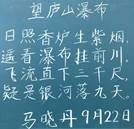 望庐山瀑布
日照香炉生紫烟,
遥看瀑布挂前川,
飞流直下三千尺,
疑是银河落九天。
马晓丹 9月22日